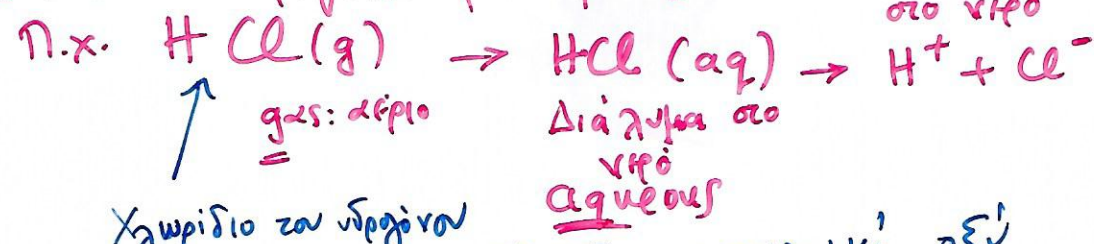 στο νερό
Π.χ. HCl (g) → HCl (aq) → H⁺ + Cl⁻
gas: αέριο
Διάλυμα στο
νερό
aqueous
Χλωρίδιο του υδρογόνου